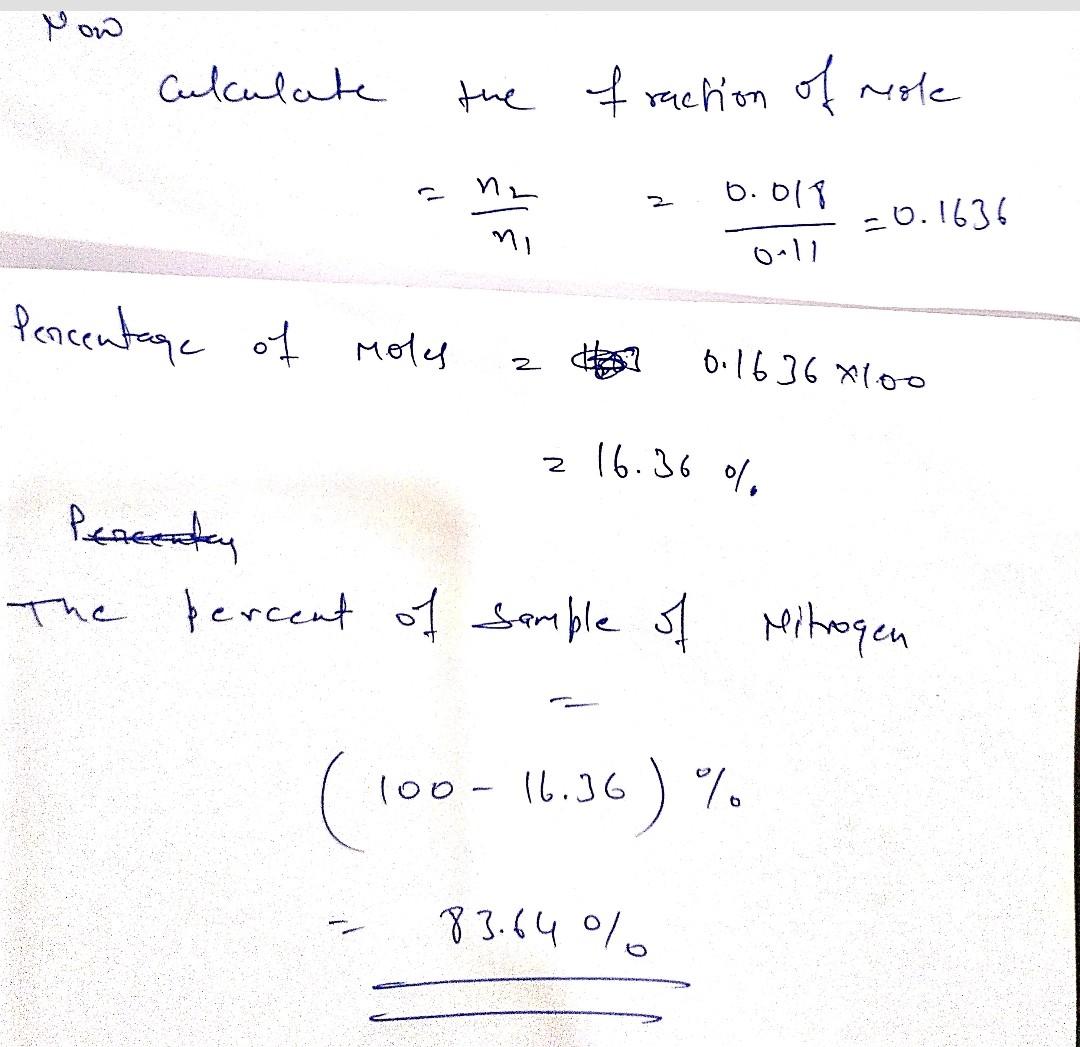 Now
Calculate the fraction of mole
= n2/n1 = 0.018/0.11 = 0.1636
Percentage of Moles = 0.1636 × 100
= 16.36 %
The percent of sample of Nitrogen
=
(100 - 16.36) %
= 83.64 %